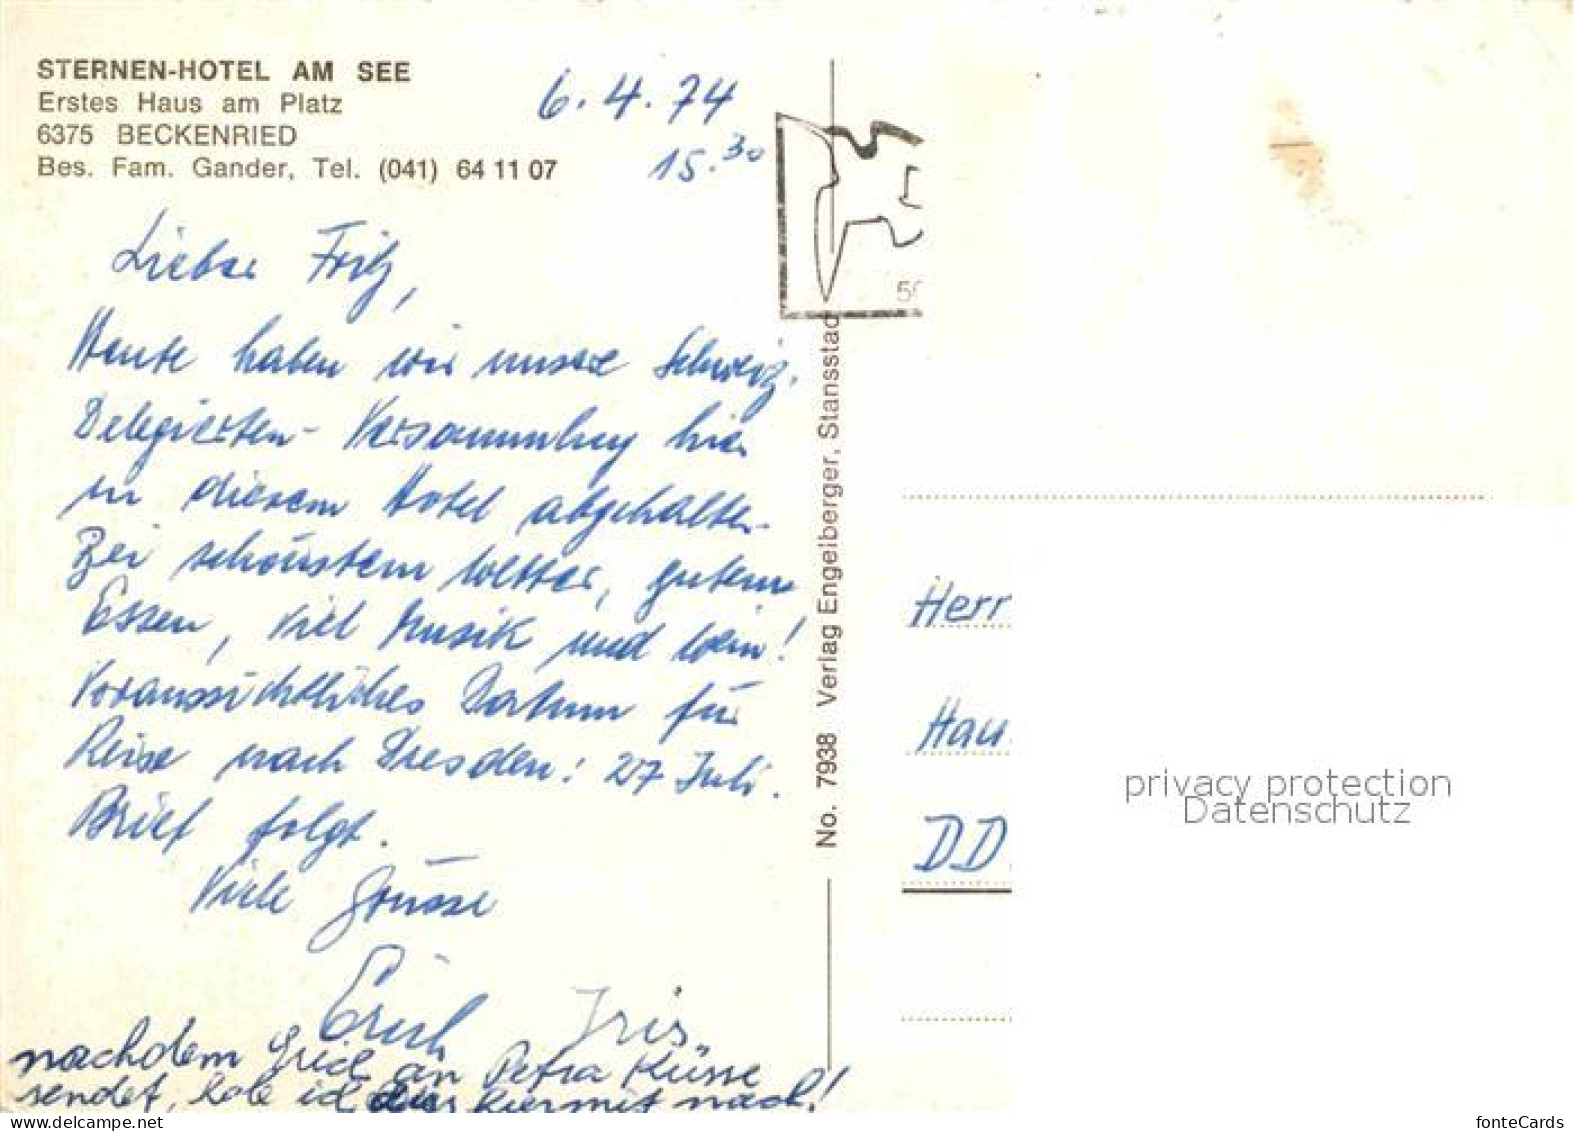 STERNEN-HOTEL AM SEE
Erstes Haus am Platz
6375 BECKENRIED
Bes. Fam. Gander, Tel. (041) 64 11 07
6.4.74
15.30
Lieber Fritz,
Heute haben wir unsere Schweiz.
Delegierten-Versammlung hier
in diesem Hotel abgehalten.
Bei schönstem Wetter, gutem
Essen, viel Musik und Wein!
Voraussichtliches Datum für
Reise nach Dresden: 27 Juli.
Brief folgt.
Viele Grüsse
Erich Iris
nachdem Erich an Petra Küsse
sendet, hole ich das hiermit nach!
No. 7938 Verlag Engelberger, Stansstad
50
Herr
Hau
DD
privacy protection
Datenschutz
fonteCards
www.delcampe.net